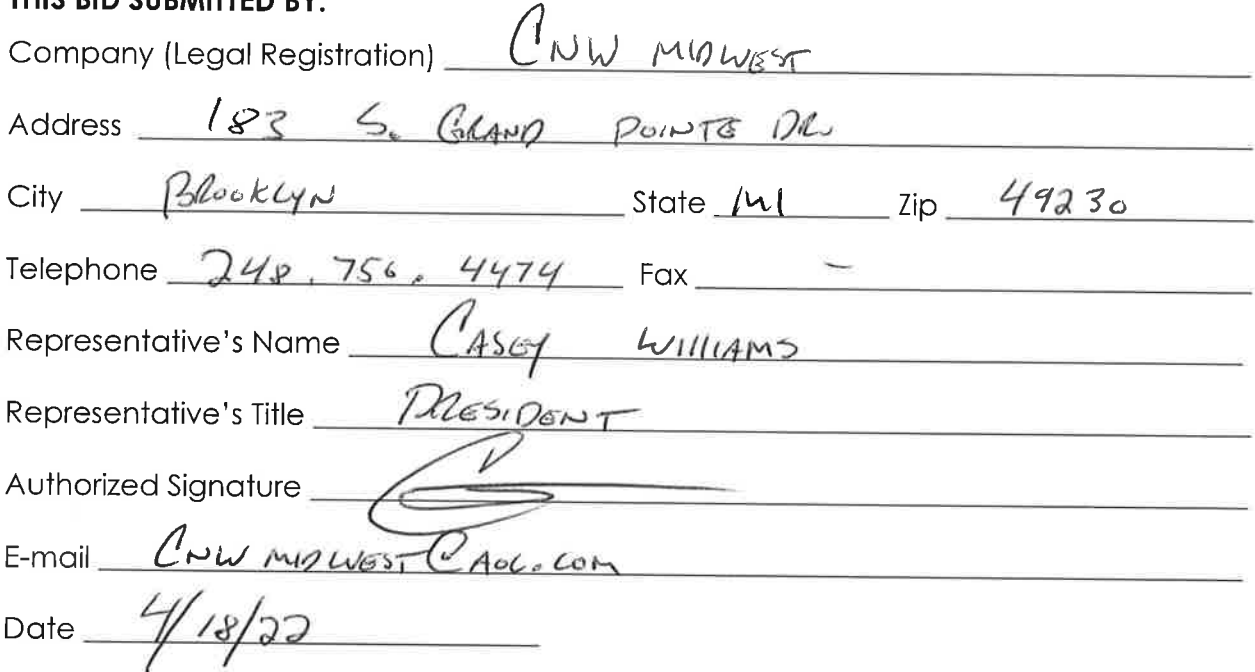 THIS BID SUBMITTED BY:
Company (Legal Registration) CNW MIDWEST
Address 183 S. GRAND POINTE DR.
City BROOKLYN State MI Zip 49230
Telephone 248.756.4474 Fax -
Representative's Name CASEY WILLIAMS
Representative's Title PRESIDENT
Authorized Signature
E-mail CNWMIDWEST@AOL.COM
Date 4/18/22